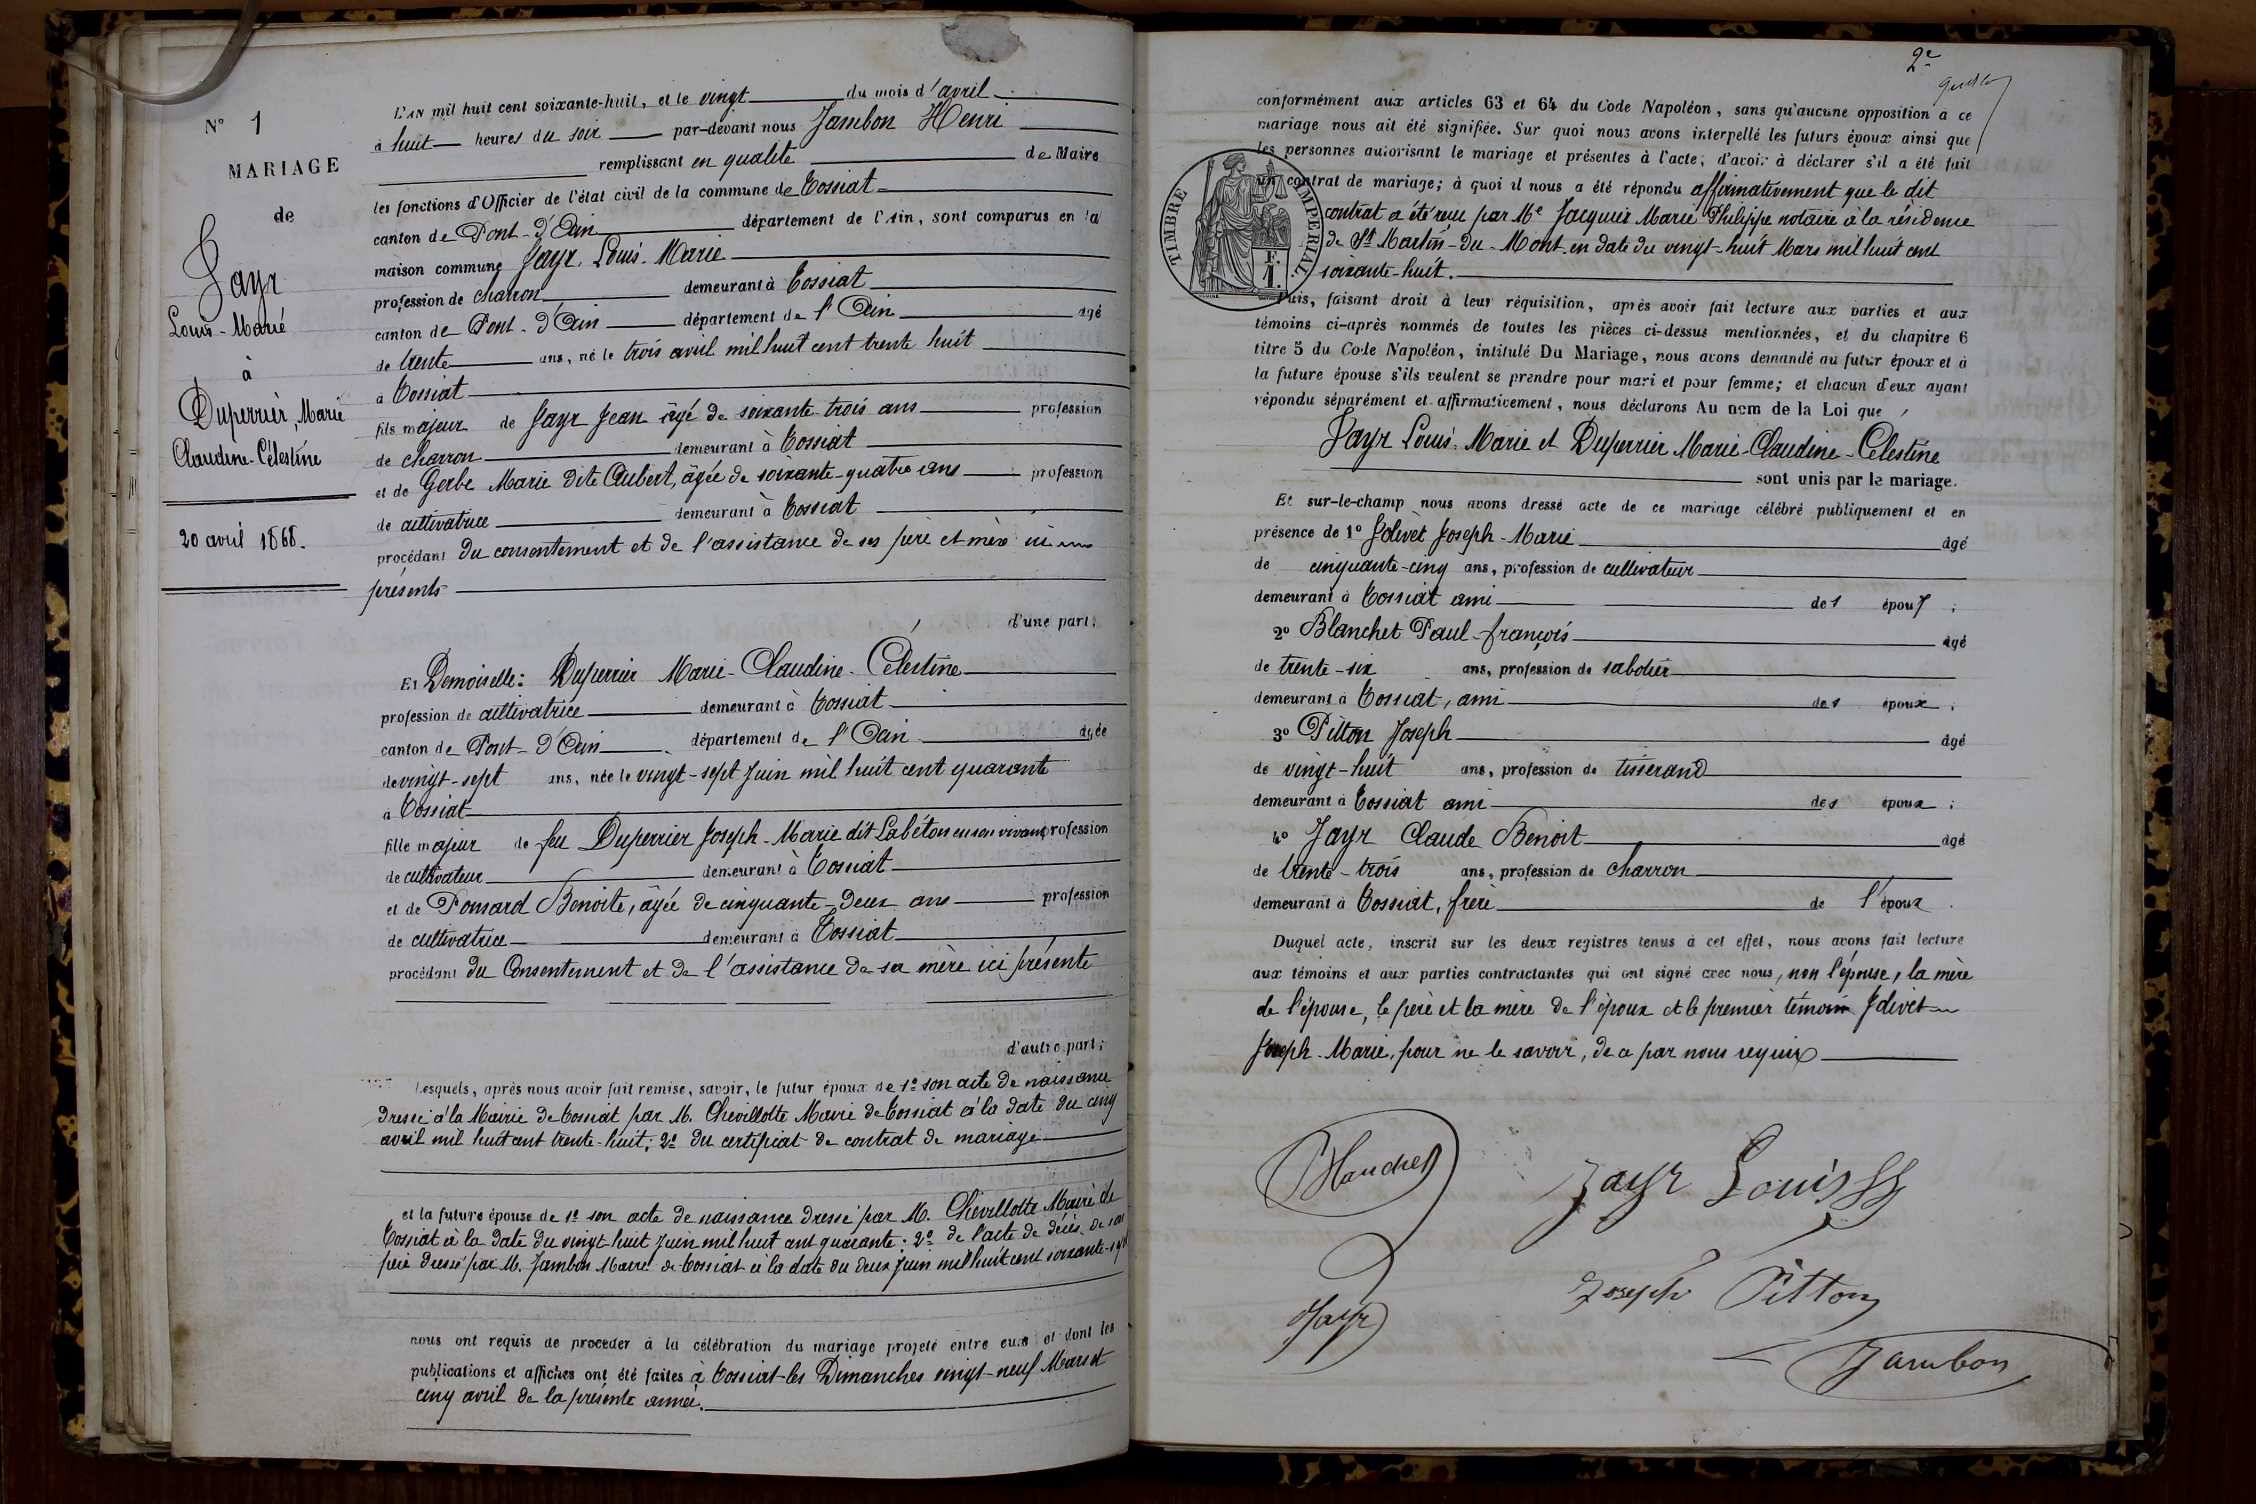 N° 1
MARIAGE
de
Jayr
Louis-Marie
à
Duperrier, Marie
Claudine-Célestine
20 avril 1868.
L'AN mil huit cent soixante-huit, et le vingt du mois d'avril
à huit heures du soir par-devant nous Jambon Henri
remplissant en qualité de Maire
les fonctions d'Officier de l'état civil de la commune de Tossiat
canton de Pont-d'Ain département de l'Ain, sont comparus en la
maison commune Jayr Louis-Marie
profession de charron demeurant à Tossiat
canton de Pont-d'Ain département de l'Ain agé
de trente ans, né le trois avril mil huit cent trente huit
à Tossiat
fils majeur de Jayr Jean âgé de soixante-trois ans profession
de charron demeurant à Tossiat
et de Gerbe Marie dite Aubert, âgée de soixante-quatre ans profession
de cultivatrice demeurant à Tossiat
procédant du consentement et de l'assistance de ses père et mère ici
présents
d'une part;
Et Demoiselle: Duperrier Marie-Claudine-Célestine
profession de cultivatrice demeurant à Tossiat
canton de Pont-d'Ain département de l'Ain agée
de vingt-sept ans, née le vingt-sept Juin mil huit cent quarante
à Tossiat
fille majeur de feu Duperrier Joseph-Marie dit Labéton en son vivant profession
de cultivateur demeurant à Tossiat
et de Ponsard Benoite, âgée de cinquante-deux ans profession
de cultivatrice demeurant à Tossiat
procédant du Consentement et de l'assistance de sa mère ici présente
d'autre part;
Lesquels, après nous avoir fait remise, savoir, le futur époux de 1° son acte de naissance
dressé à la Mairie de Tossiat par M. Chevillotte Maire de Tossiat à la date du cinq
avril mil huit cent trente-huit; 2° du certificat de contrat de mariage
et la future épouse de 1° son acte de naissance dressé par M. Chevillotte Maire de
Tossiat à la date du vingt-huit Juin mil huit cent quarante; 2° de l'acte de décès de son
père dressé par M. Jambon Maire de Tossiat à la date du deux Juin mil huit cent soixante-sept
nous ont requis de procéder à la célébration du mariage projeté entre eux et dont les
publications et affiches ont été faites à Tossiat les Dimanches vingt-neuf Mars et
cinq avril de la présente année.
2e
conformément aux articles 63 et 64 du Code Napoléon, sans qu'aucune opposition à ce
mariage nous ait été signifiée. Sur quoi nous avons interpellé les futurs époux ainsi que
les personnes autorisant le mariage et présentes à l'acte, d'avoir à déclarer s'il a été fait
un contrat de mariage; à quoi il nous a été répondu affirmativement que le dit
contrat a été reçu par Me Jacquier Marie Philippe notaire à la résidence
de St Martin-du-Mont en date du vingt-huit Mars mil huit cent
soixante-huit.
TIMBRE IMPERIAL.
1 F.
Puis, faisant droit à leur réquisition, après avoir fait lecture aux parties et aux
témoins ci-après nommés de toutes les pièces ci-dessus mentionnées, et du chapitre 6
titre 5 du Code Napoléon, intitulé Du Mariage, nous avons demandé au futur époux et à
la future épouse s'ils veulent se prendre pour mari et pour femme; et chacun d'eux ayant
répondu séparément et affirmativement, nous déclarons Au nom de la Loi que
Jayr Louis-Marie et Duperrier Marie-Claudine-Célestine
sont unis par le mariage.
Et sur-le-champ nous avons dressé acte de ce mariage célébré publiquement et en
présence de 1° Jolivet Joseph-Marie agé
de cinquante-cinq ans, profession de cultivateur
demeurant à Tossiat ami des époux;
2° Blanchet Paul-françois agé
de trente-six ans, profession de sabotier
demeurant à Tossiat, ami des époux;
3° Pitton Joseph agé
de vingt-huit ans, profession de tisserand
demeurant à Tossiat ami des époux;
4° Jayr Claude Benoit agé
de trente-trois ans, profession de charron
demeurant à Tossiat, frère de l'époux.
Duquel acte, inscrit sur les deux registres tenus à cet effet, nous avons fait lecture
aux témoins et aux parties contractantes qui ont signé avec nous, non l'épouse, la mère
de l'épouse, le père et la mère de l'époux et le premier témoin Jolivet
Joseph-Marie, pour ne le savoir, de ce par nous requis
Blanchet
Jayr Louis
Joseph Pitton
Jayr
Jambon